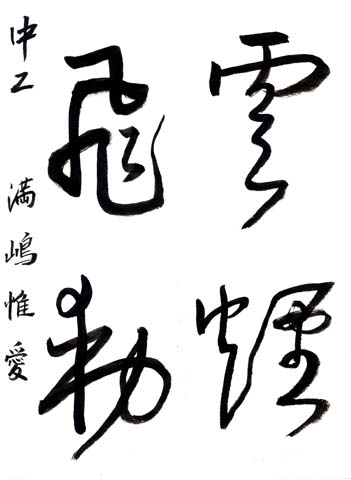 雲煙
飛動
中二 満嶋惟愛